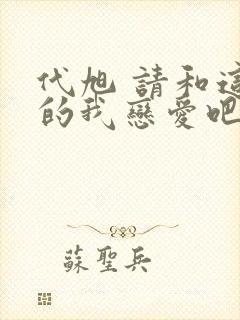 代旭 請和這
的我戀愛吧
蘇聖兵